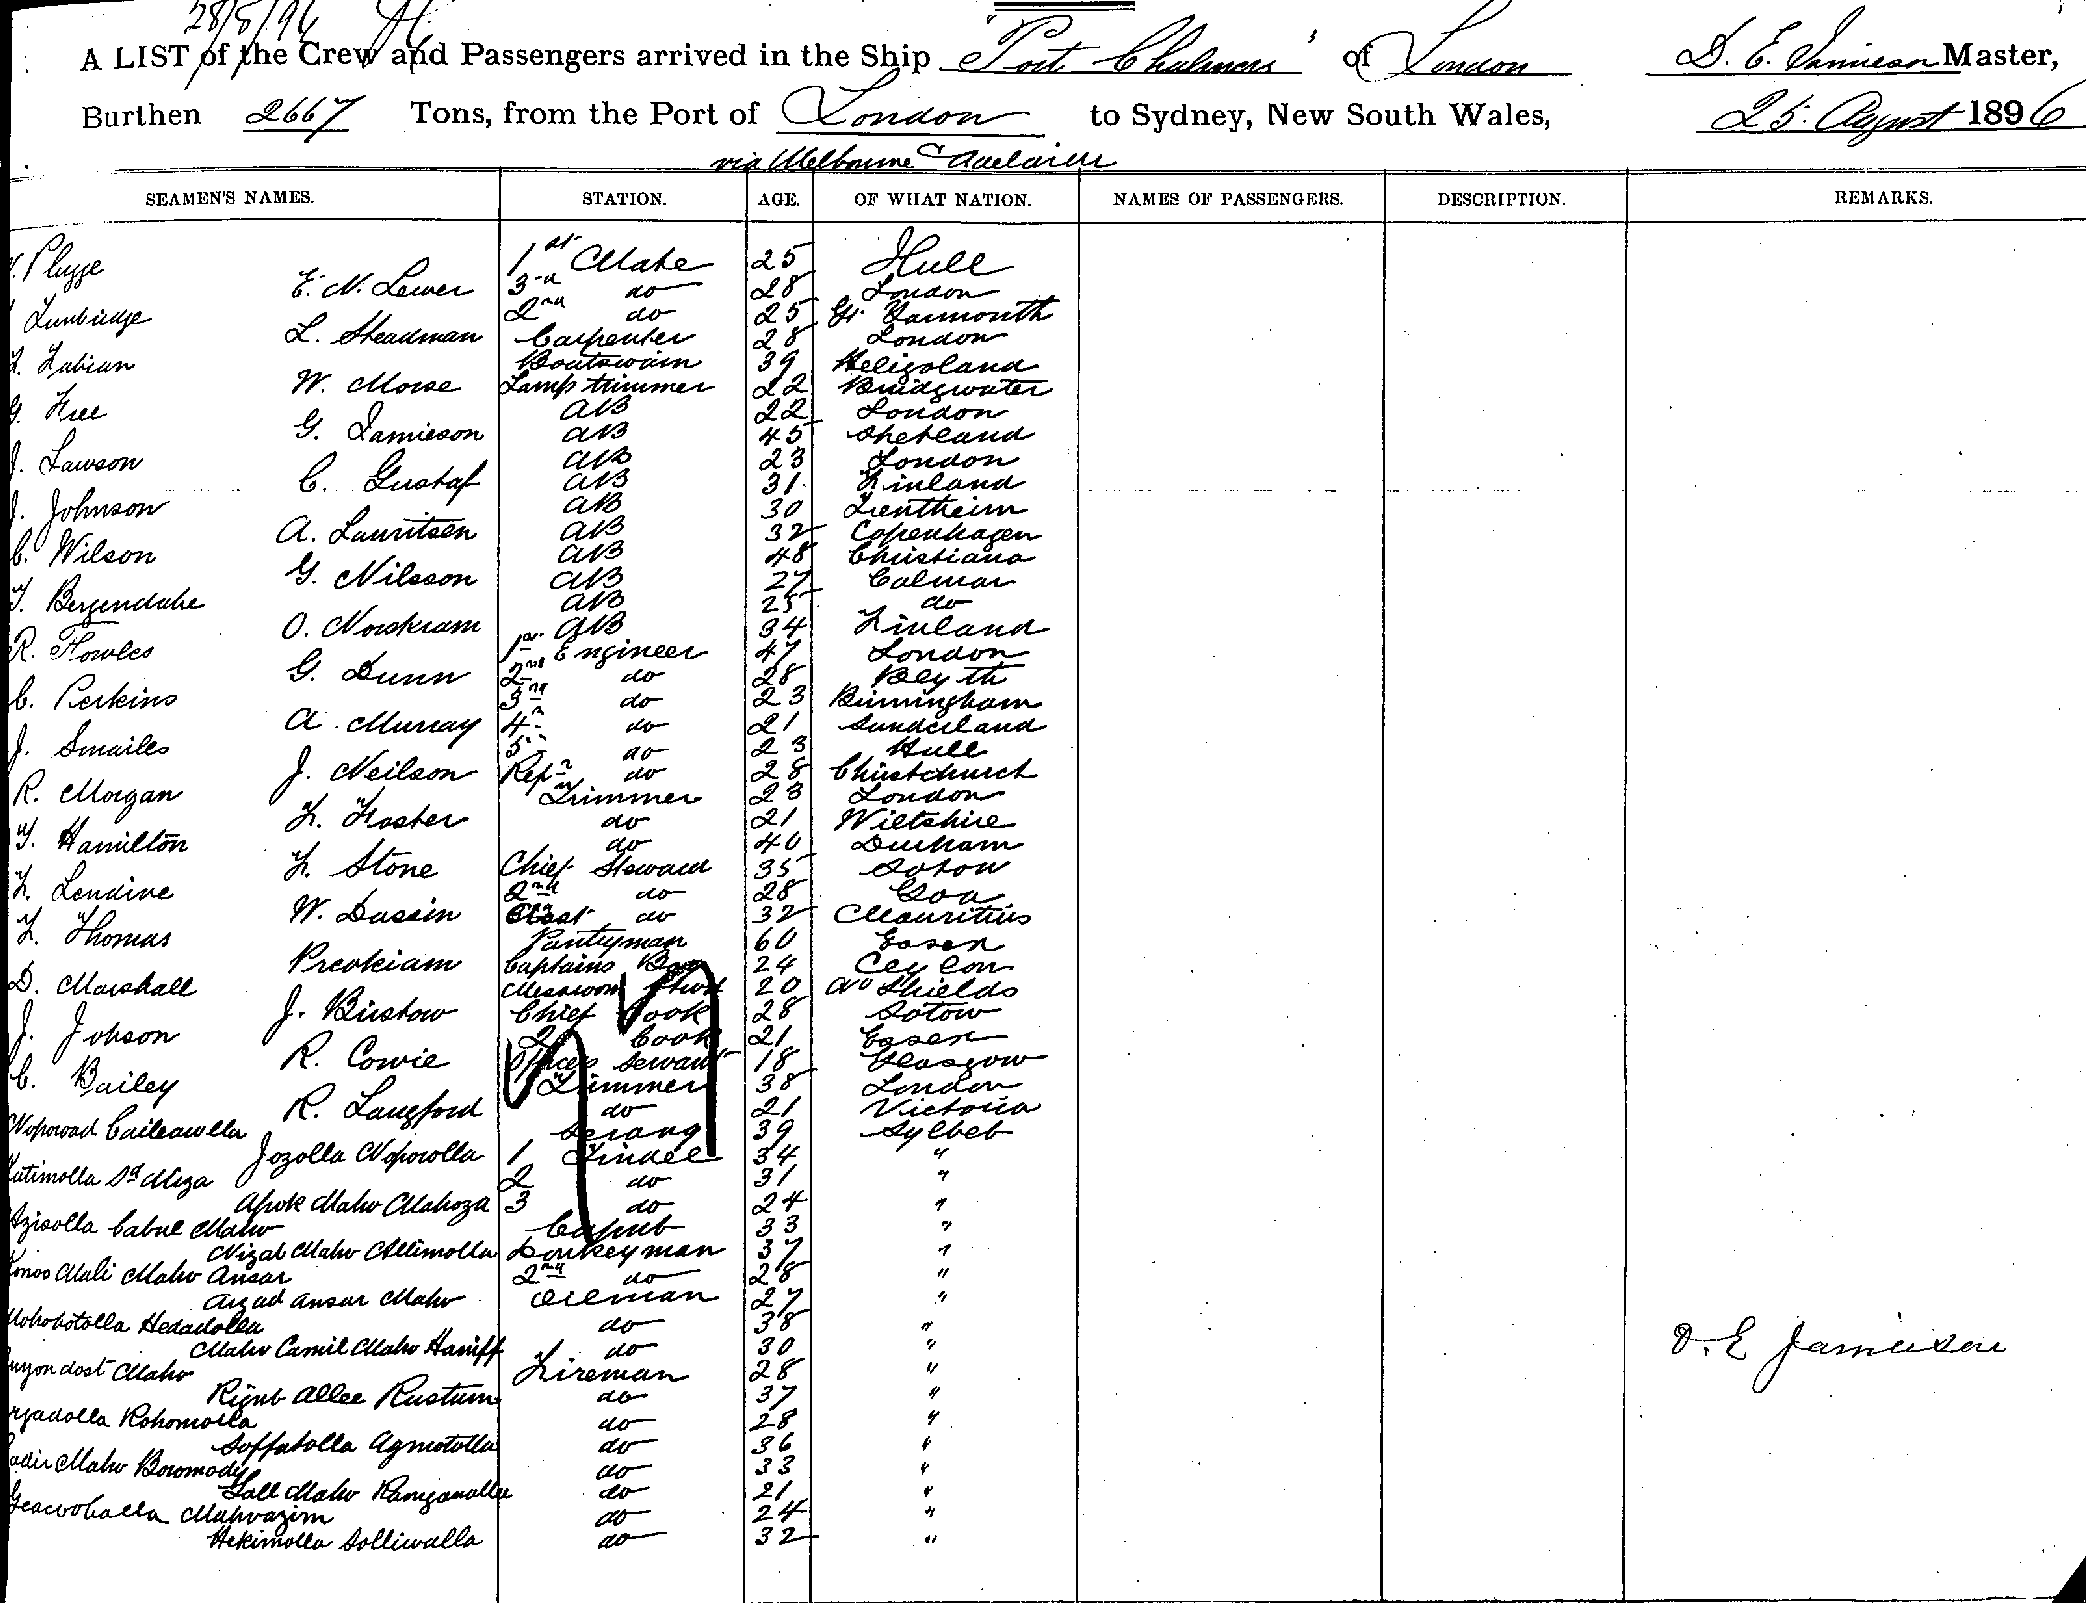 28/8/96
A LIST of the Crew and Passengers arrived in the Ship "Port Chalmers" of London D. E. Jamieson Master,
Burthen 2667 Tons, from the Port of London to Sydney, New South Wales, 25 August 1896
via Melbourne & Adelaide
SEAMEN'S NAMES. STATION. AGE. OF WHAT NATION. NAMES OF PASSENGERS. DESCRIPTION. REMARKS.
Plugge 1st Mate 25 Hull
E. N. Lewer 3rd do 28 London
Tunbridge 2nd do 25 Gt. Yarmouth
L. Steadman Carpenter 28 London
F. Fabian Boatswain 39 Heligoland
W. Morse Lamp trimmer 22 Bridgwater
G. Free AB 22 London
G. Jamieson AB 45 Shetland
J. Lawson AB 23 London
C. Gustaf AB 31 Finland
J. Johnson AB 30 Trentheim
A. Lauritsen AB 32 Copenhagen
C. Wilson AB 48 Christiana
G. Nilsson AB 27 Calmar
T. Bergendahe AB 25 do
O. Norskram AB 34 Finland
R. Fowles 1st Engineer 47 London
G. Dunn 2nd do 28 Blyth
C. Perkins 3rd do 23 Birmingham
A. Murray 4th do 21 Sunderland
J. Smailes 5th do 23 Hull
J. Neilson Refr do 28 Christchurch
R. Morgan Trimmer 23 London
F. Foster do 21 Wiltshire
T. Hamilton do 40 Durham
F. Stone Chief Steward 35 Soton
F. Lendive 2nd do 28 Goa
W. Dassin do 32 Mauritius
F. Thomas Pantryman 60 Essex
Preokiam Captains Boy 24 Ceylon
D. Marshall Messroom Stwd 20 No Shields
J. Bristow Chief Cook 28 Soton
J. Jobson 2 Cook 21 Essex
R. Cowie Officers Servant 18 Glasgow
C. Bailey Trimmer 38 London
R. Langford do 21 Victoria
Noporoad Caileawlla Serang 39 Sylhet
Jozolla Noporolla 1 Tindee 34 "
Sd Miza 2 do 31 "
Apok Maho Mahoza 3 do 24 "
Azisolla Cabul Maho 33 "
Nizab Maho Allimolla Donkeyman 37 "
Mali Maho Ansar 2nd do 28 "
Aizad Ansar Maho Oileman 27 "
Mohobotolla Hedadolla do 38 "
Maho Camil Maho Haniff do 30 "
dost Maho Fireman 28 "
Rijub Allee Rustum do 37 "
Rohomolla do 28 "
Soffatolla Agmotolla do 36 "
Maho Boromody do 33 "
Lall Maho Ramganallee do 21 "
Mahvazim do 24 "
Hekimolla Solliwalla do 32 "
D. E Jamieson